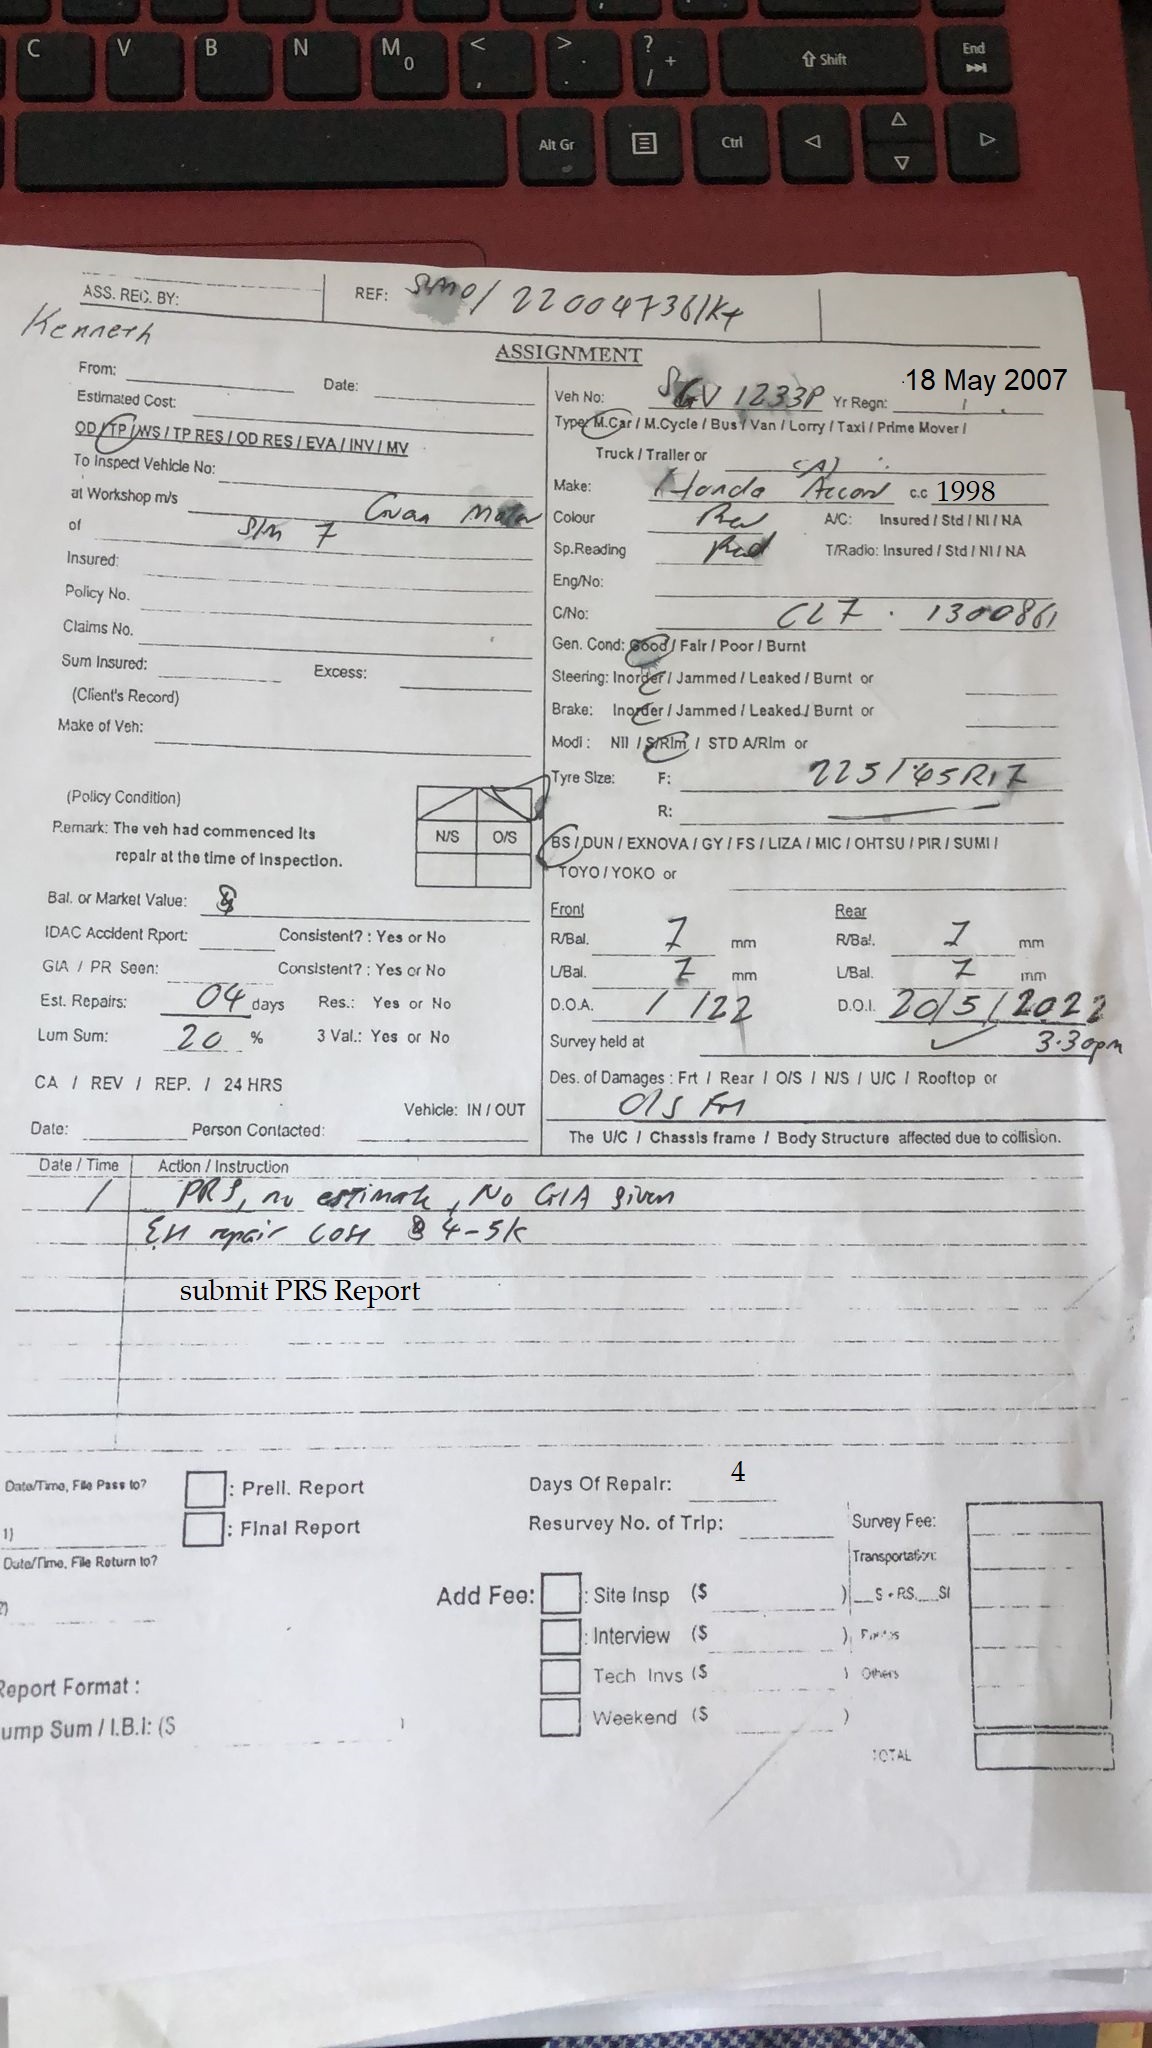 C V B N M 0 < , > . ? / + Shift End
Alt Gr Ctrl
ASS. REC. BY:
REF: /22004736/Kt
Kenneth
ASSIGNMENT
From: Date:
Estimated Cost:
OD / TP / WS / TP RES / OD RES / EVA / INV / MV
To Inspect Vehicle No:
at Workshop m/s Guan Motor
of Sin 7
Insured:
Policy No.
Claims No.
Sum Insured: Excess:
(Client's Record)
Make of Veh:
(Policy Condition)
Remark: The veh had commenced its
repair at the time of inspection.
N/S O/S
Bal. or Market Value: $
IDAC Accident Rport: Consistent? : Yes or No
GIA / PR Seen: Consistent? : Yes or No
Est. Repairs: 04 days Res.: Yes or No
Lum Sum: 20 % 3 Val.: Yes or No
CA / REV / REP. / 24 HRS
Vehicle: IN / OUT
Date: Person Contacted:
Veh No: SGV 1233P Yr Regn: 18 May 2007
Type: M.Car / M.Cycle / Bus / Van / Lorry / Taxi / Prime Mover /
Truck / Trailer or (A)
Make: Honda Accord c.c 1998
Colour Red A/C: Insured / Std / NI / NA
Sp.Reading Red T/Radio: Insured / Std / NI / NA
Eng/No:
C/No: CL7 . 1300861
Gen. Cond: Good / Fair / Poor / Burnt
Steering: Inorder / Jammed / Leaked / Burnt or
Brake: Inorder / Jammed / Leaked / Burnt or
Modi : Nil / S/Rim / STD A/Rim or
Tyre Size: F: 225/45R17
R:
BS / DUN / EXNOVA / GY / FS / LIZA / MIC / OHTSU / PIR / SUMI /
TOYO / YOKO or
Front Rear
R/Bal. 7 mm R/Bal. 7 mm
L/Bal. 7 mm L/Bal. 7 mm
D.O.A. / /22 D.O.I. 20/5/2022
Survey held at 3.30pm
Des. of Damages : Frt / Rear / O/S / N/S / U/C / Rooftop or
O/S Frt
The U/C / Chassis frame / Body Structure affected due to collision.
Date / Time Action / Instruction
/ PRS, no estimate, No GIA given
Est repair cost $ 4-5k
submit PRS Report
Date/Time, File Pass to?
: Prell. Report
Days Of Repair: 4
1)
: Final Report
Resurvey No. of Trip:
Survey Fee:
Date/Time, File Return to?
Transportation:
2)
Add Fee: : Site Insp ($ ) __S + RS.__SI
: Interview ($ )
Tech Invs ($ ) Others
Report Format :
Weekend ($ )
ump Sum / I.B.I: ($ )
TOTAL